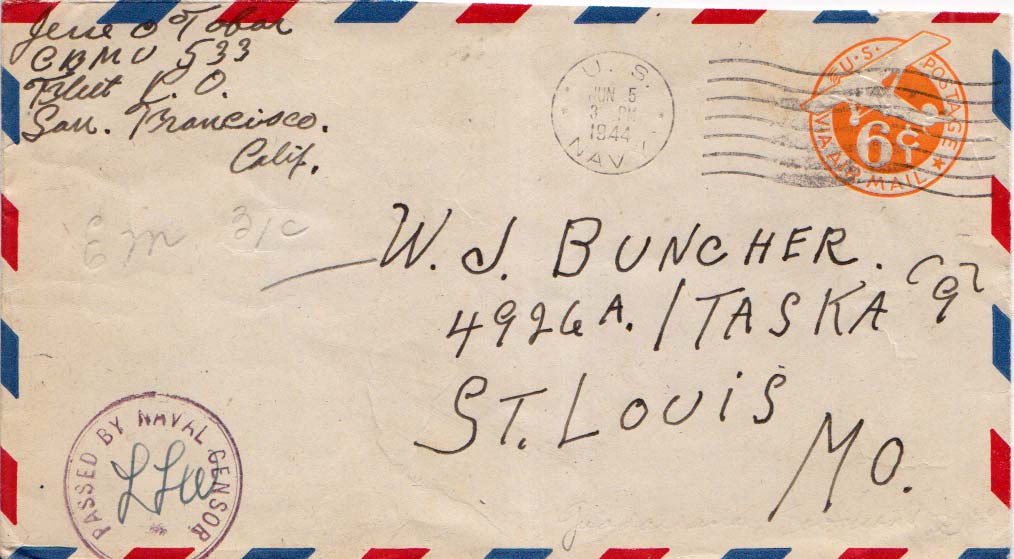 Jesse O Tobar
CBMU 533
Fleet P.O.
San. Francisco.
Calif.
U. S.
JUN 5
3 PM
1944
NAVY
U.S. POSTAGE
VIA AIR MAIL
6¢
6 m 31c
W. J. BUNCHER.
4926A. ITASKA (9)
ST. LOUIS
MO.
PASSED BY NAVAL CENSOR